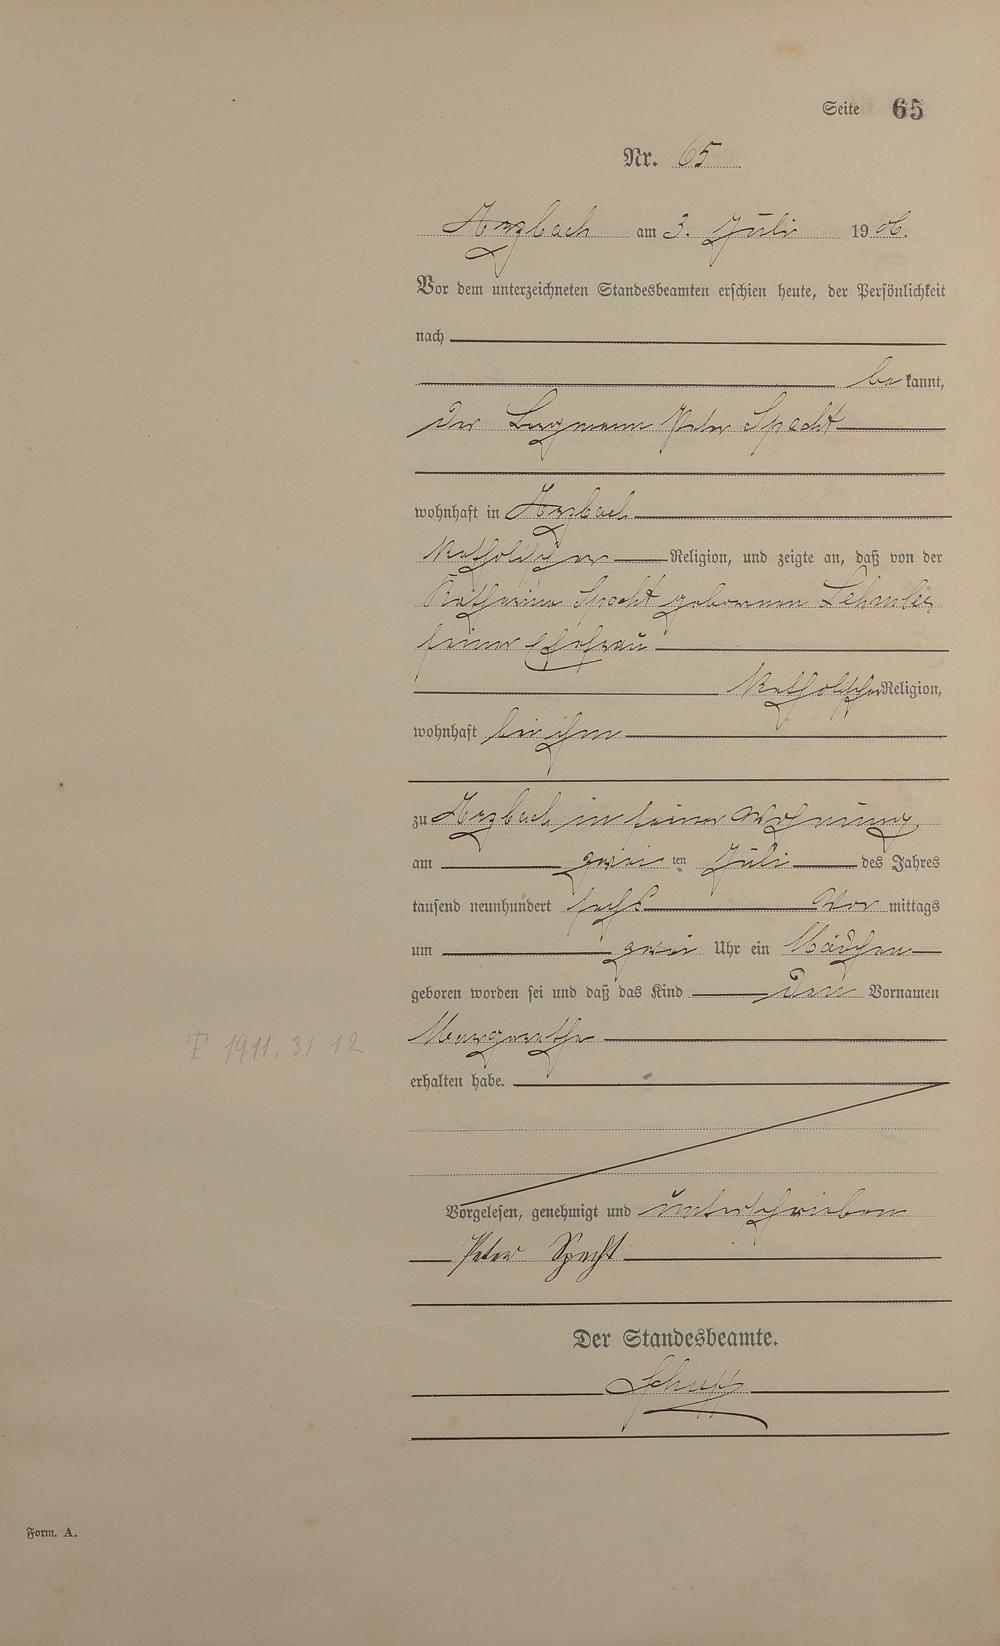 Seite 65
Nr. 65
Arzbach am 3. Juli 1906.
Vor dem unterzeichneten Standesbeamten erschien heute, der Persönlichkeit
nach
be kannt,
der Bergmann Peter Specht
wohnhaft in Arzbach
katholischer Religion, und zeigte an, daß von der
Katharina Specht geborenen
seiner Ehefrau
katholischer Religion,
wohnhaft bei ihm
zu Arzbach in seiner Wohnung
am zwei ten Juli des Jahres
tausend neunhundert sechs Vor mittags
um zwei Uhr ein Mädchen
geboren worden sei und daß das Kind den Vornamen
Margarethe
F 1911. 31. 12
erhalten habe.
Vorgelesen, genehmigt und unterschrieben
Peter Specht
Der Standesbeamte.
Schupp
Form. A.